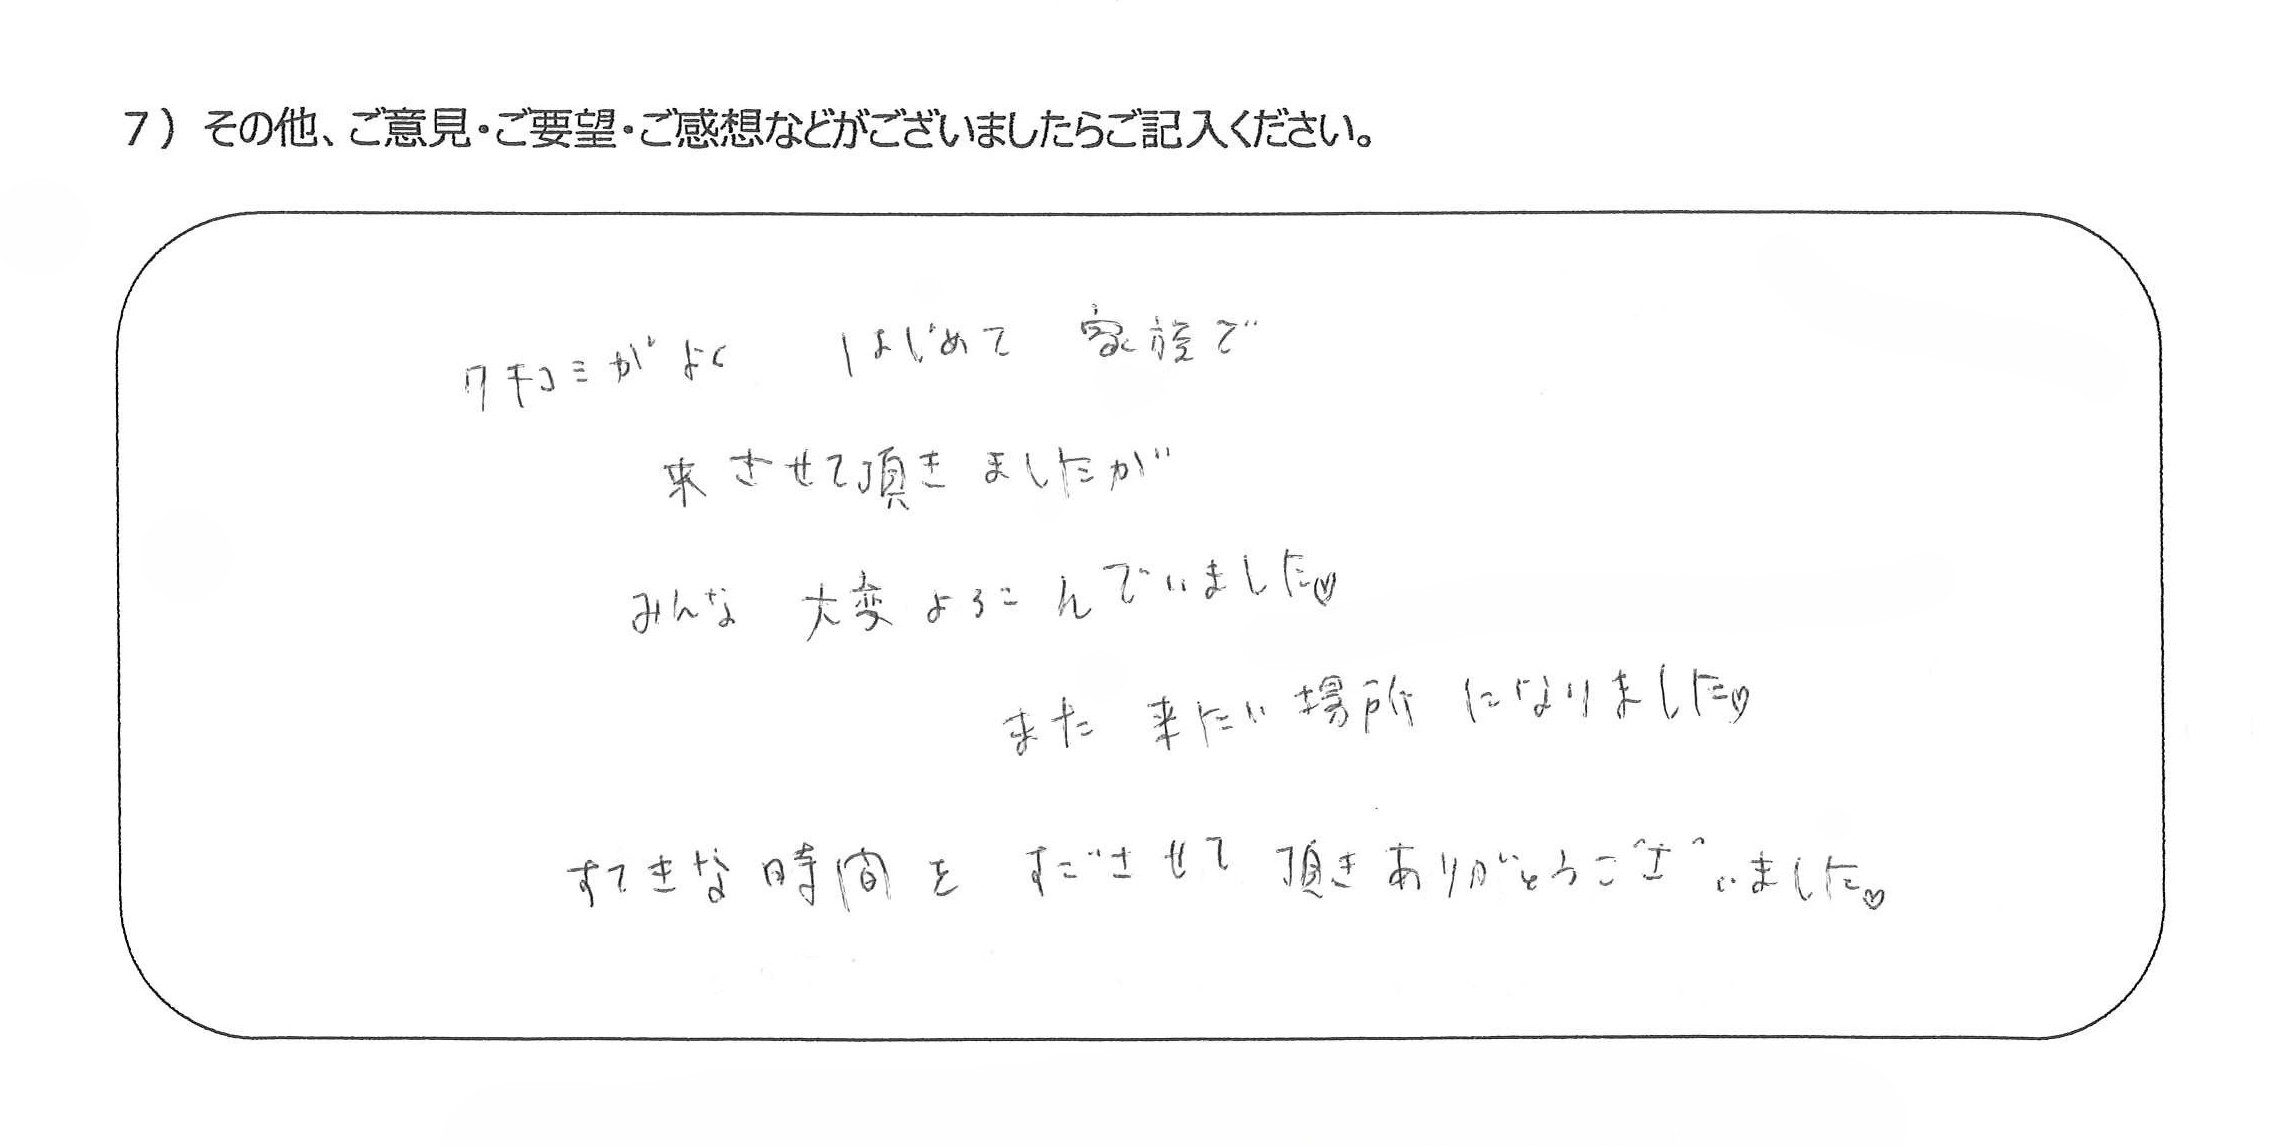 7）その他、ご意見・ご要望・ご感想などがございましたらご記入ください。
クチコミがよく はじめて 家族で
来させて頂きましたが
みんな 大変よろこんでいました♡
また 来たい場所 になりました♡
すてきな時間を すごさせて 頂きありがとうございました♡